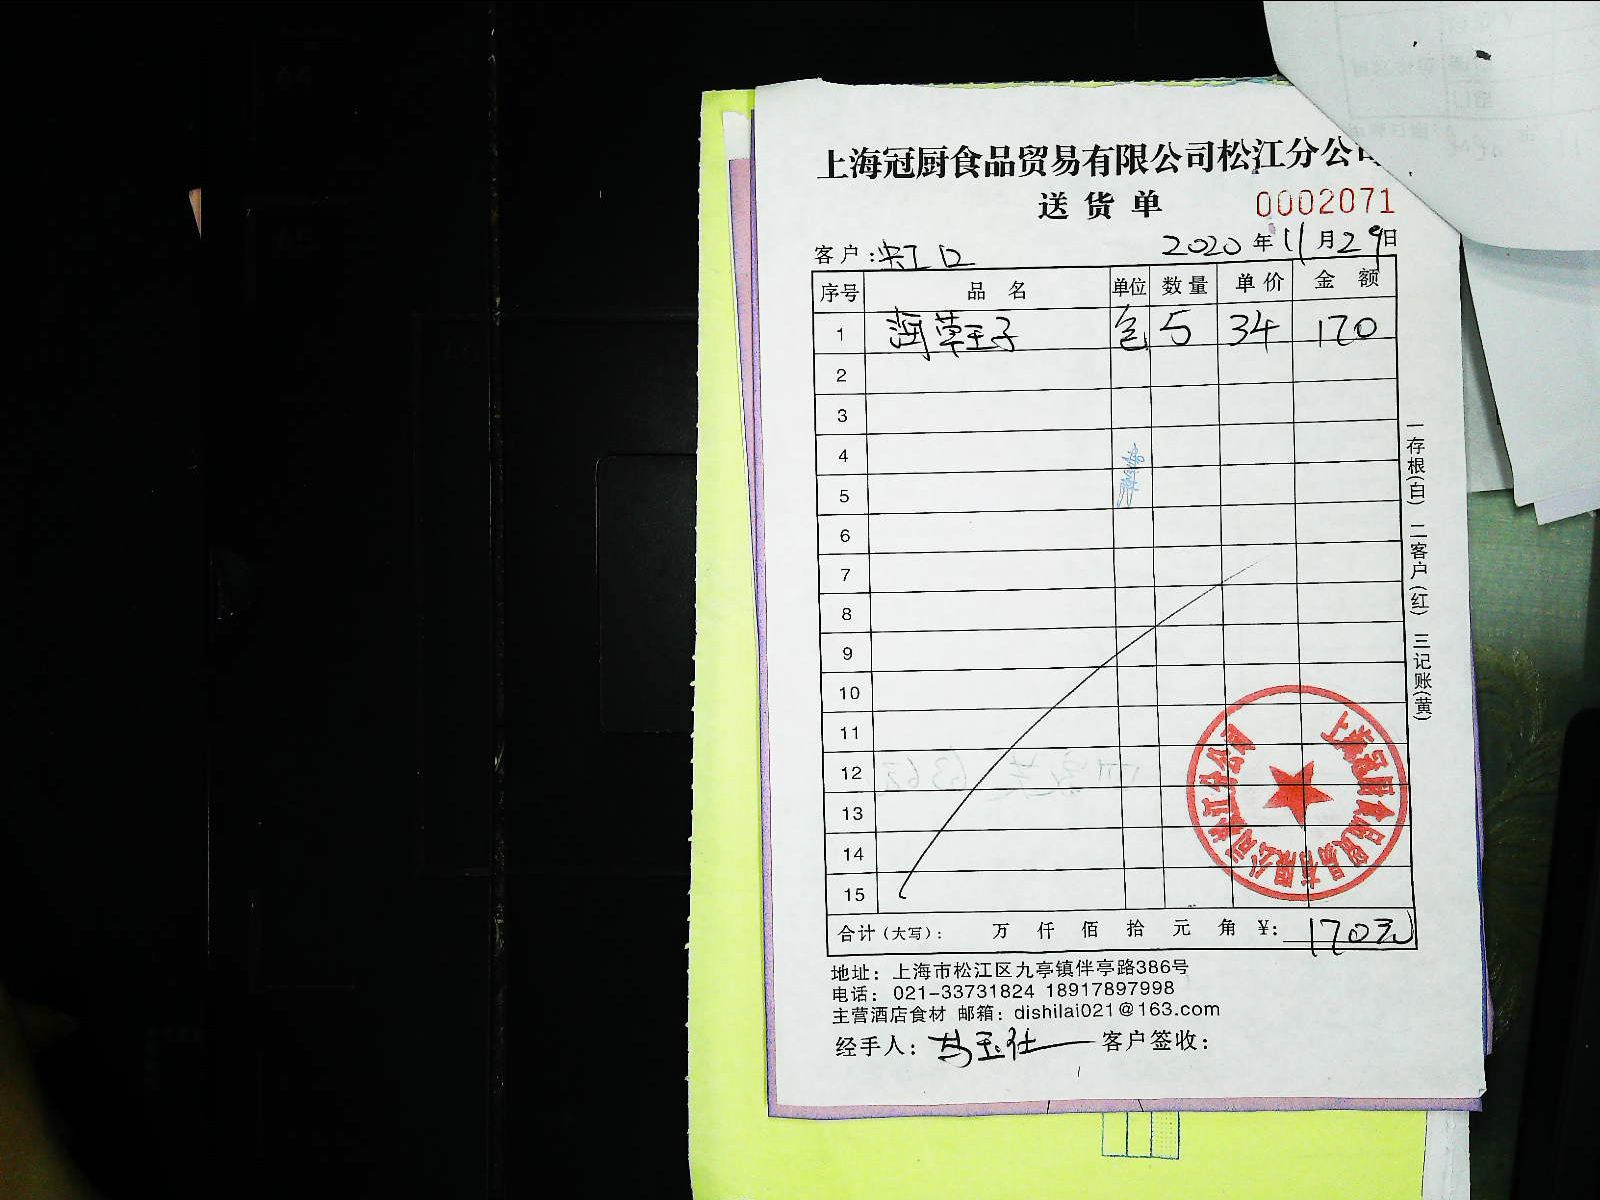 上海冠厨食品贸易有限公司松江分公司
送货单 0002071
客户: 2020年11月29日
序号 品名 单位 数量 单价 金额
1 王子 包 5 34 170
2
3
4
5
6
7
8
9
10
11
12
13
14
15
合计(大写): 万 仟 佰 拾 元 角 ¥: 170元
地址: 上海市松江区九亭镇伴亭路386号
电话: 021-33731824 18917897998
主营酒店食材 邮箱: dishilai021@163.com
经手人: 客户签收:
一存根(白) 二客户(红) 三记账(黄)
上海冠厨食品贸易有限公司松江分公司